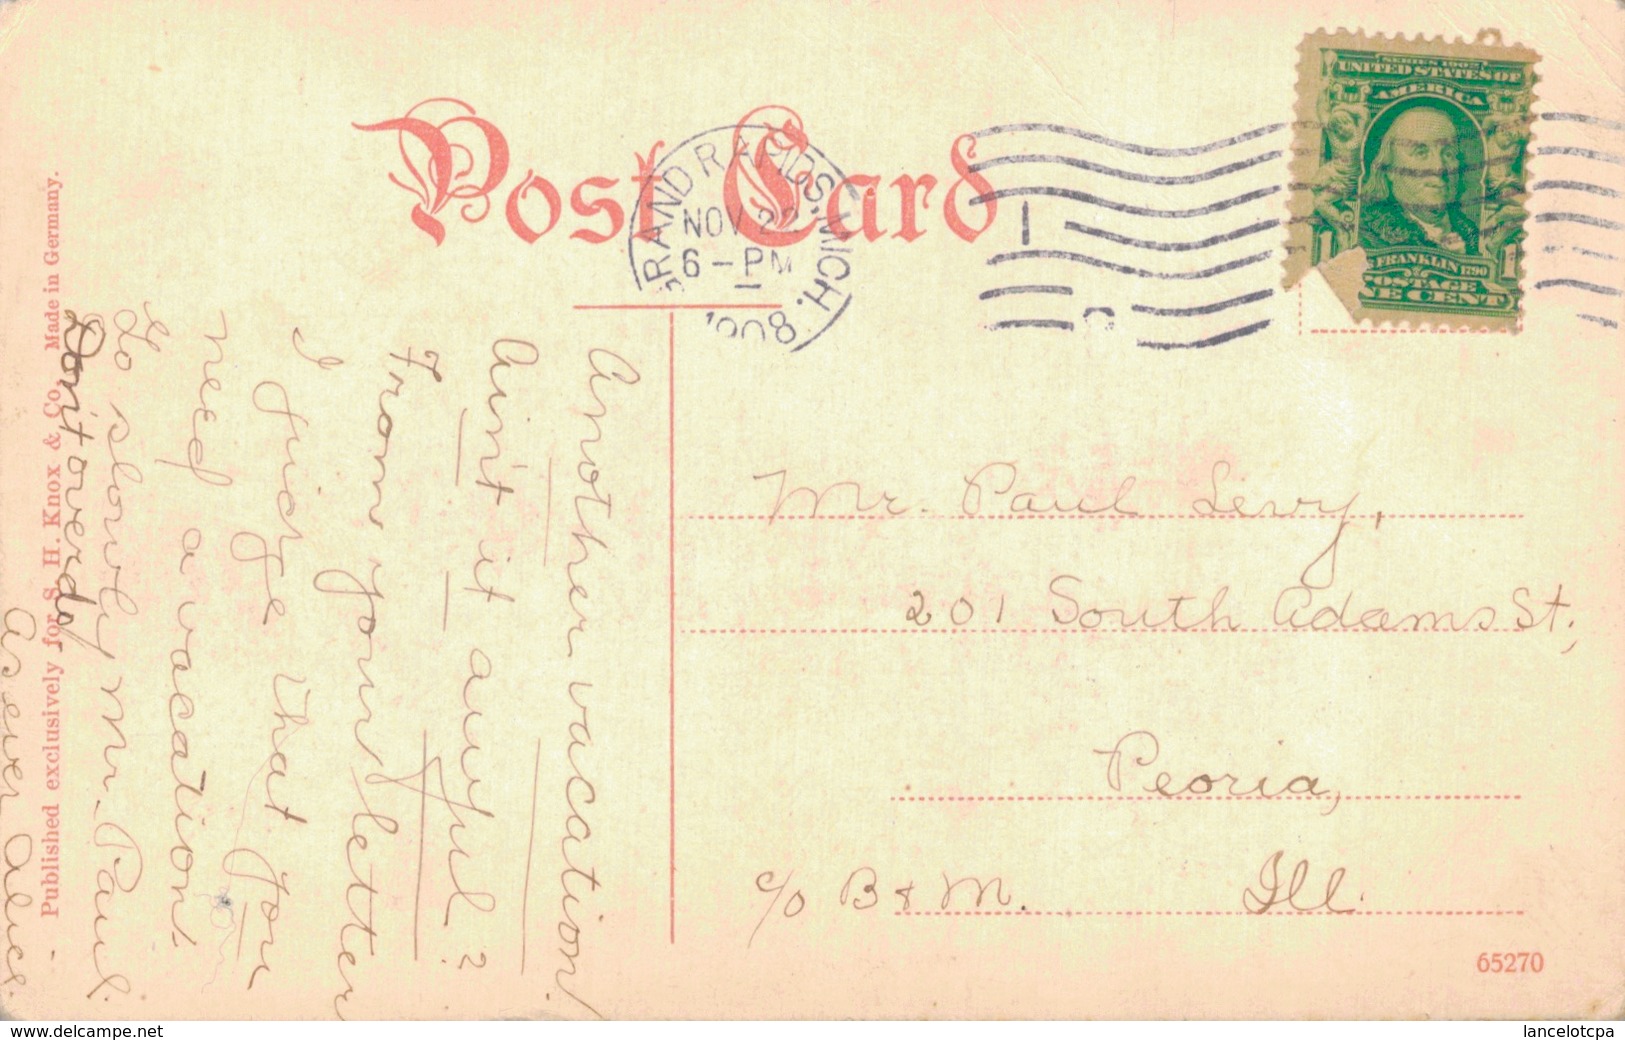 Post Card
GRAND RAPIDS, MICH.
NOV 22
6-PM
1908
1
SERIES 1902
UNITED STATES OF
AMERICA
FRANKLIN 1790
1 1
POSTAGE
ONE CENT
Another vacation!
Ain't it awful?
From your letter
I judge that you
need a vacation.
Go slowly Mr. Paul.
Don't overdo
As ever Alice.
Published exclusively for S. H. Knox & Co. Made in Germany.
Mr. Paul Levy,
201 South Adams St.,
Peoria,
c/o B & M. Ill.
65270
www.delcampe.net
lancelotcpa